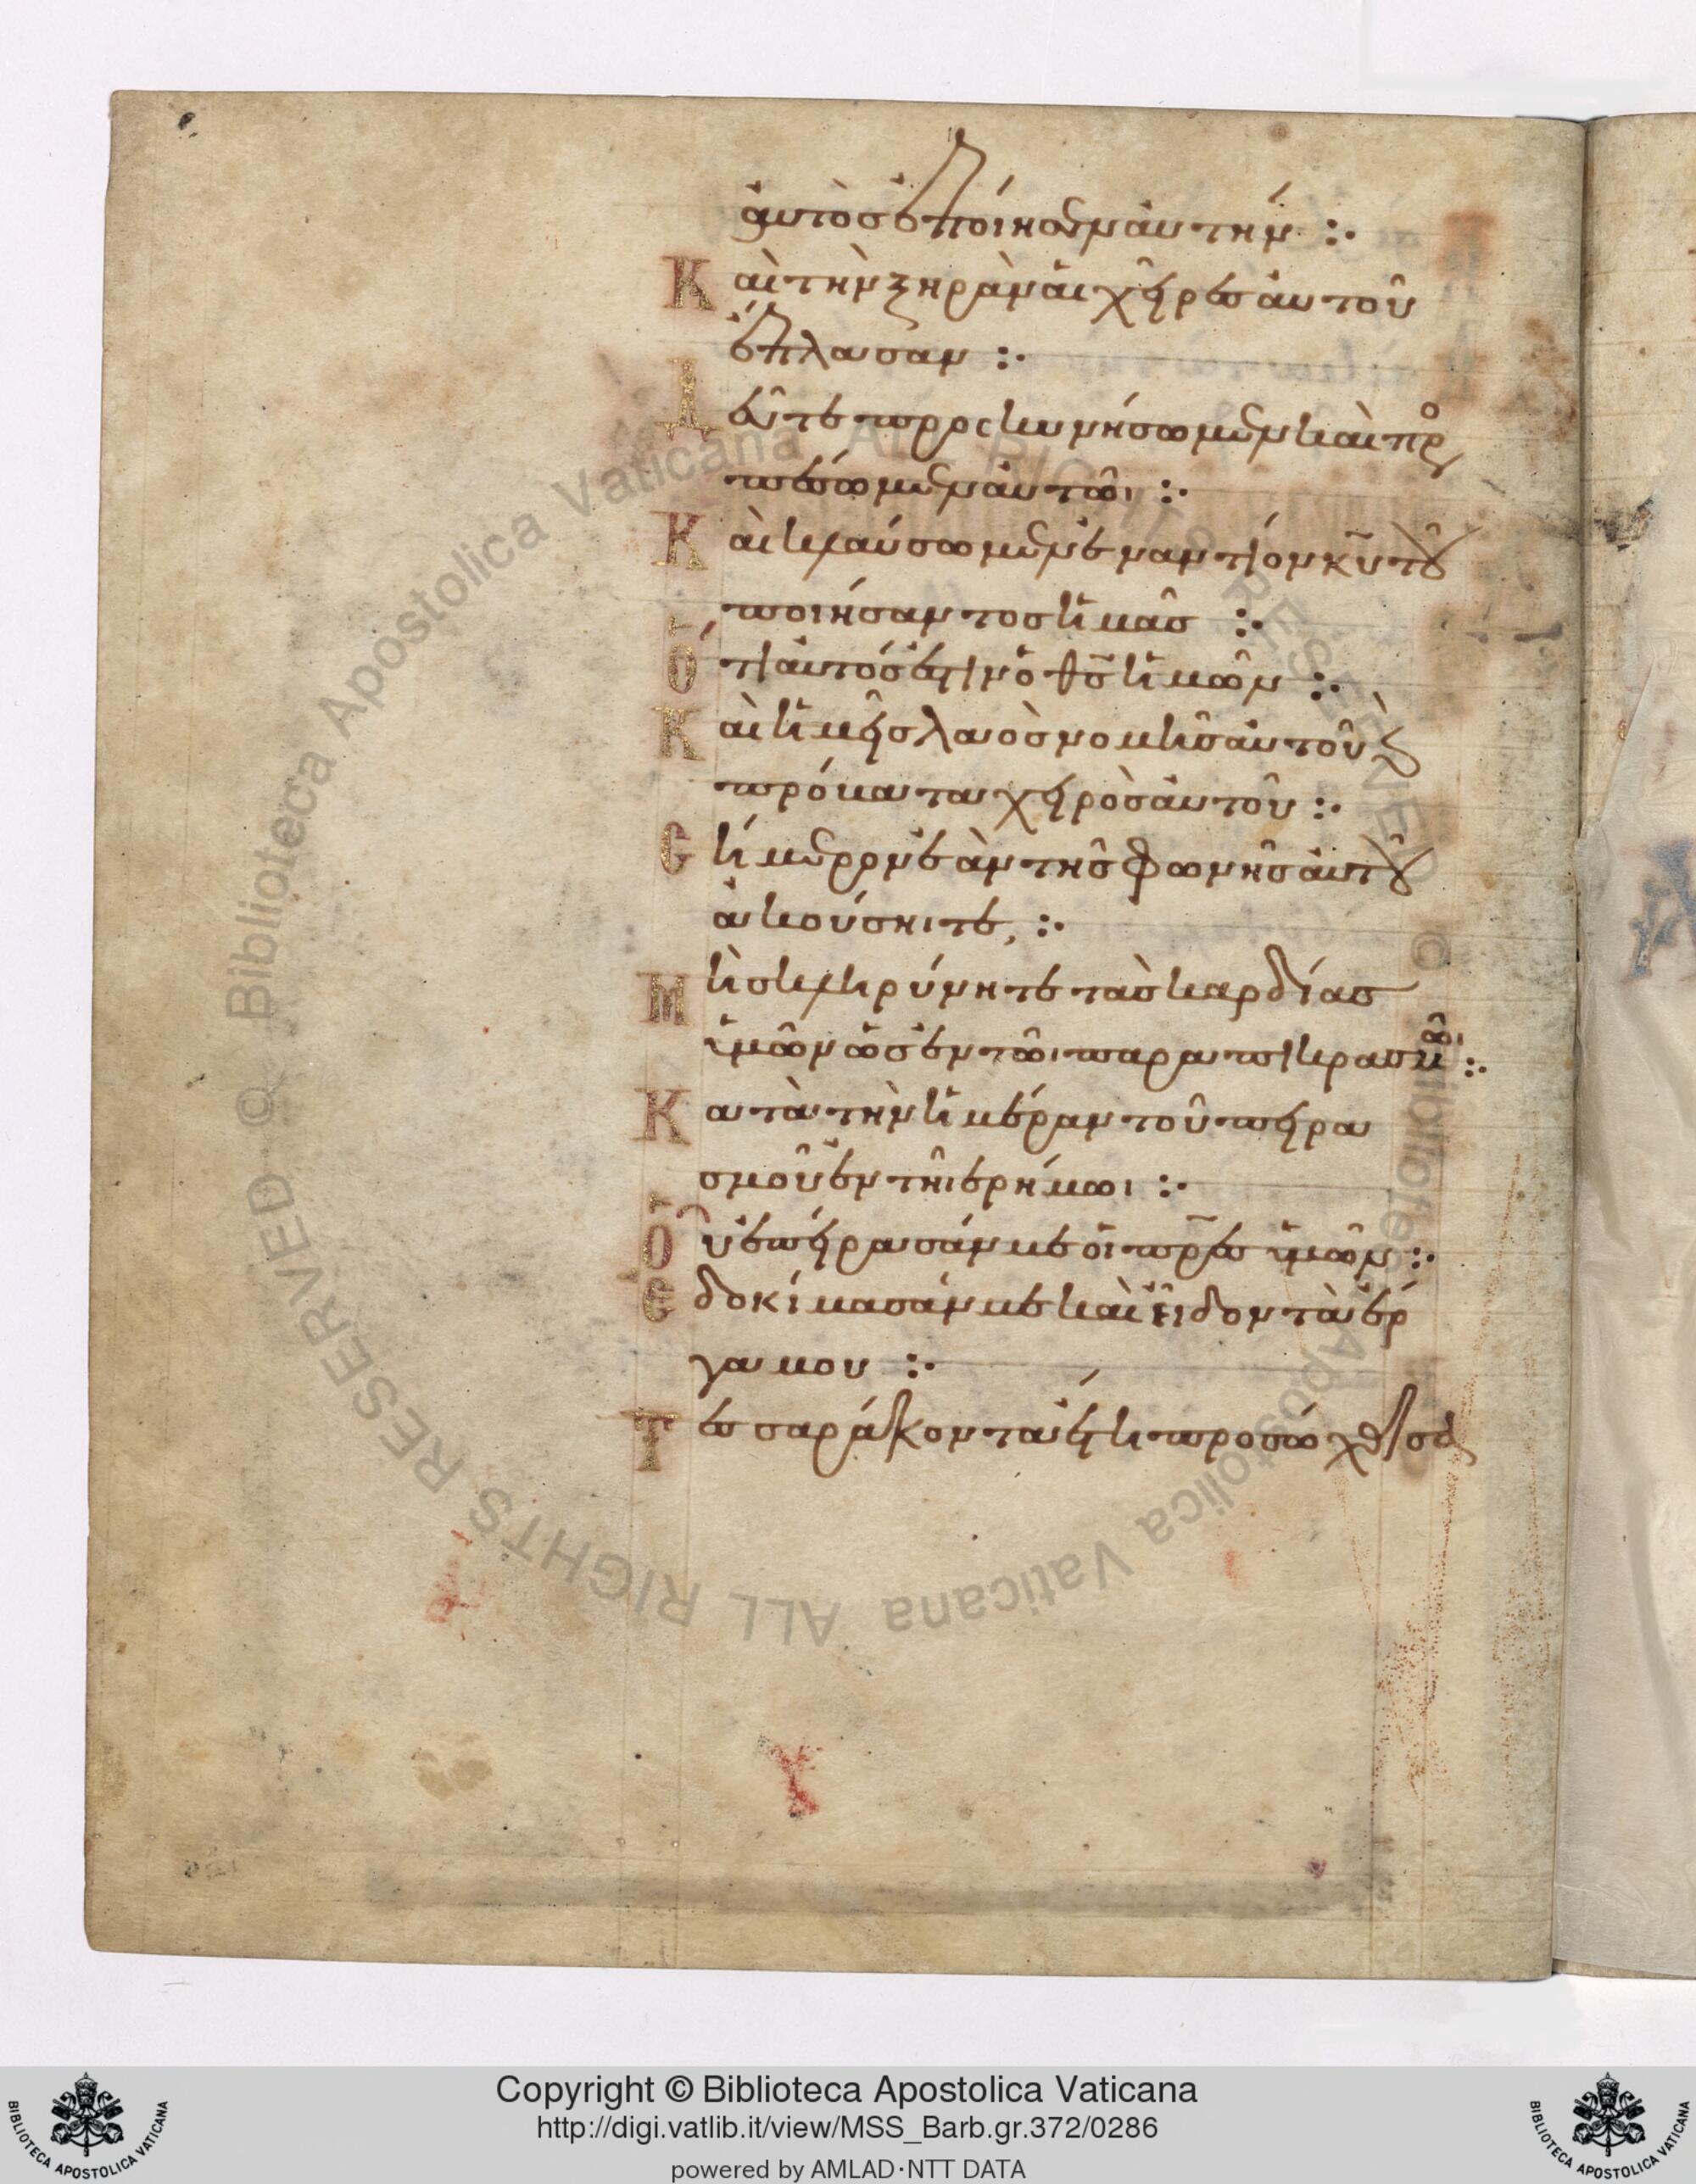 αὐτὸς ἐποίησεν αὐτήν :·
Καὶ τὴν ξηρὰν αἱ χεῖρες αὐτοῦ
ἔπλασαν :·
Δεῦτε προσκυνήσωμεν καὶ προς
πέσωμεν αὐτῶι :·
Καὶ κλαύσωμεν ἐναντίον κ̅υ̅ τοῦ
ποιήσαντος ἡμᾶς :·
Ὅτι αὐτός ἐστιν ὁ θ̅ς̅ ἡμῶν :·
Καὶ ἡμεῖς λαὸς νομῆς αὐτοῦ ϗ
πρόβατα χειρὸς αὐτοῦ :·
Σήμερον ἐὰν τῆς φωνῆς αὐτοῦ
ἀκούσητε, :·
Μὴ σκληρύνητε τὰς καρδίας
ὑμῶν ὡς ἐν τῶι παραπικρασμῶι :·
Κατὰ τὴν ἡμέραν τοῦ πειρα
σμοῦ ἐν τῆι ἐρήμωι :·
Οὗ ἐπείρασάν με οἱ π̅ρ̅ε̅ς̅ ὑμῶν :·
Ἐδοκίμασάν με καὶ εἶδον τὰ ἔρ
γα μου :·
Τεσσαράκοντα ἔτη προσώχθισα
Copyright © Biblioteca Apostolica Vaticana
http://digi.vatlib.it/view/MSS_Barb.gr.372/0286
powered by AMLAD·NTT DATA
BIBLIOTECA APOSTOLICA VATICANA
BIBLIOTECA APOSTOLICA VATICANA